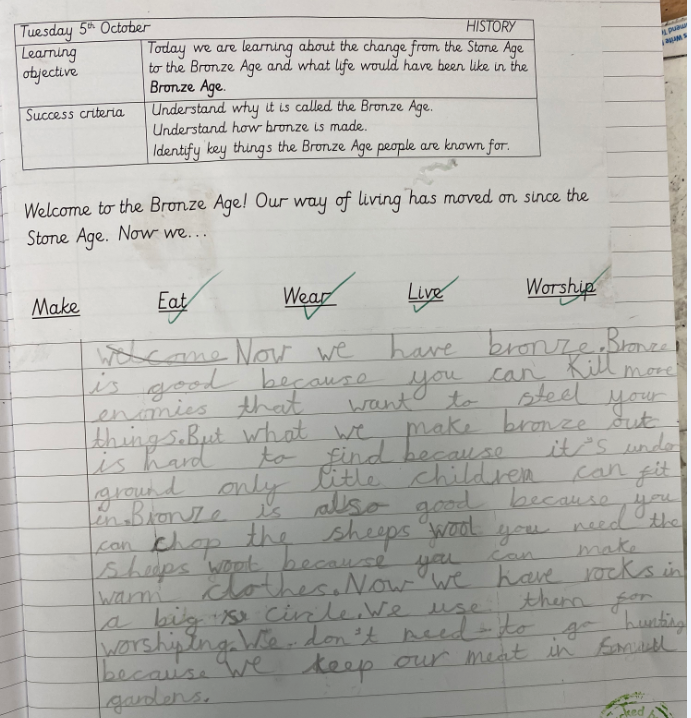 Tuesday 5th October HISTORY
Learning objective
Today we are learning about the change from the Stone Age
to the Bronze Age and what life would have been like in the
Bronze Age.
Success criteria
Understand why it is called the Bronze Age.
Understand how bronze is made.
Identify key things the Bronze Age people are known for.
Welcome to the Bronze Age! Our way of living has moved on since the
Stone Age. Now we...
Make Eat Wear Live Worship
Welcome Now we have bronze. Bronze
is good because you can kill more
enomies that want to steel your
things. But what we make bronze out
is hard to find because it's unde
ground only litle children can fit
in. Bronze is also good because you
can chop the sheeps wool you need the
sheeps wool because you can make
warm clothes. Now we have rocks in
a big circle. We use them for
worshiping. We don't need to go hunting
because we keep our meat in
gardens.